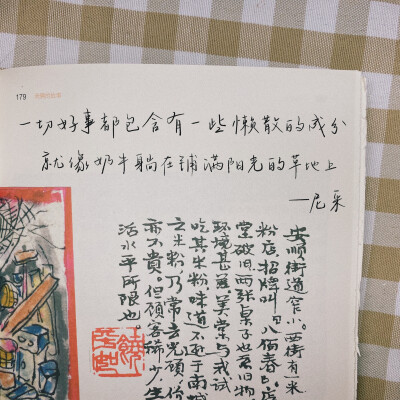 179
一切好事都包含有一些懒散的成分
就像奶牛躺在铺满阳光的草地上
—尼采
安顺街道窄小。西街有米
粉店，招牌叫八佰春，店
堂破旧，两张桌子也系旧物
环境甚美。尝与我试
吃其米粉，味道不逊于南城
之米粉，乃常去光顾，份
亦不贵。但顾客稀少，生
活水平所限也。